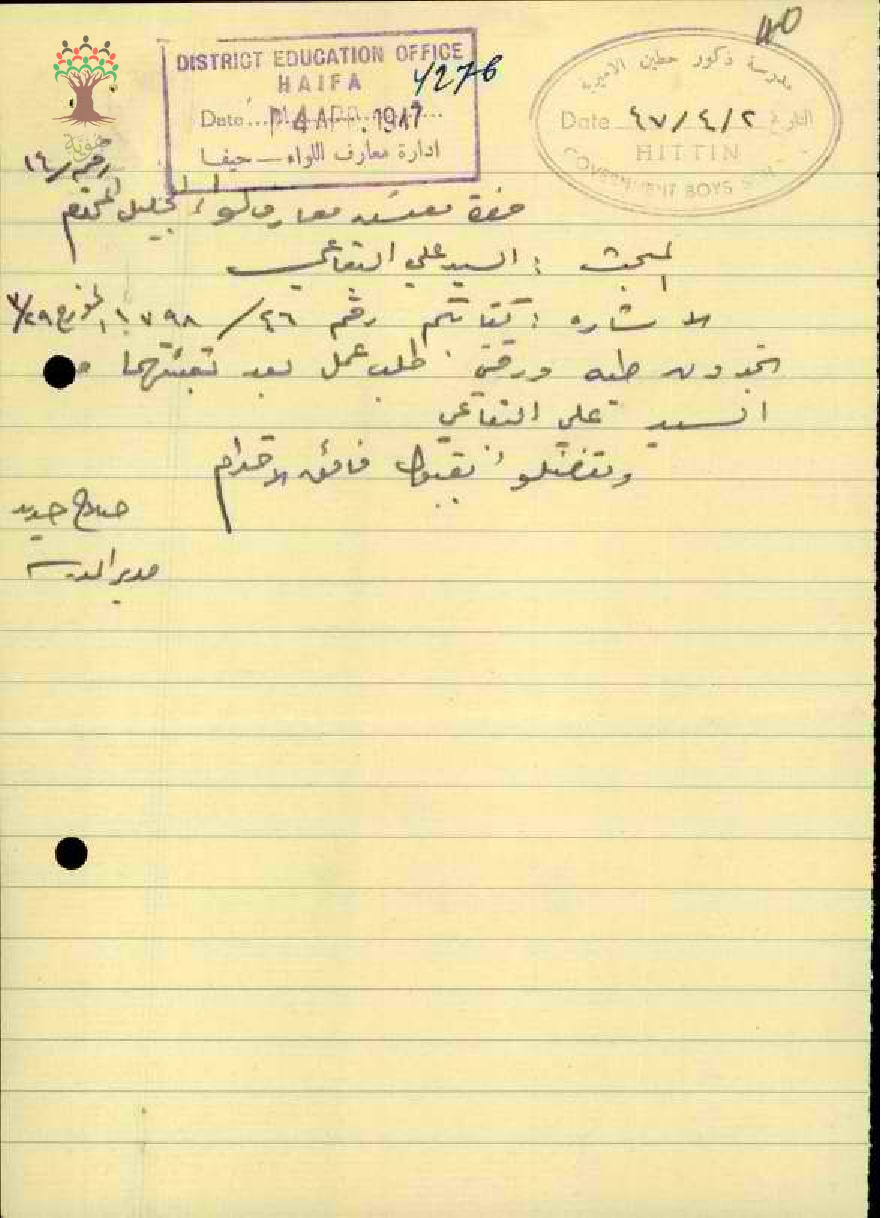 DISTRICT EDUCATION OFFICE
HAIFA
4276
Date 4 APR. 1947
ادارة معارف اللواء – حيفا
مدرسة ذكور حطين الاميرية
Date ٤٧/٤/٢ التاريخ
HITTIN
GOVERNMENT BOYS
رقم /١٤
حضرة مفتش معارف لواء الجليل المحترم
المبحث : السيد علي البقاعي
الاشارة : كتابكم رقم ٤٦/ ١٧٩٨ المؤرخ ٣/٢٩
تجدون طيه ورقتي طلب عمل بعد تعبئتهما من
السيد علي البقاعي
وتفضلوا بقبول فائق الاحترام
صلاح
مدير المدرسة